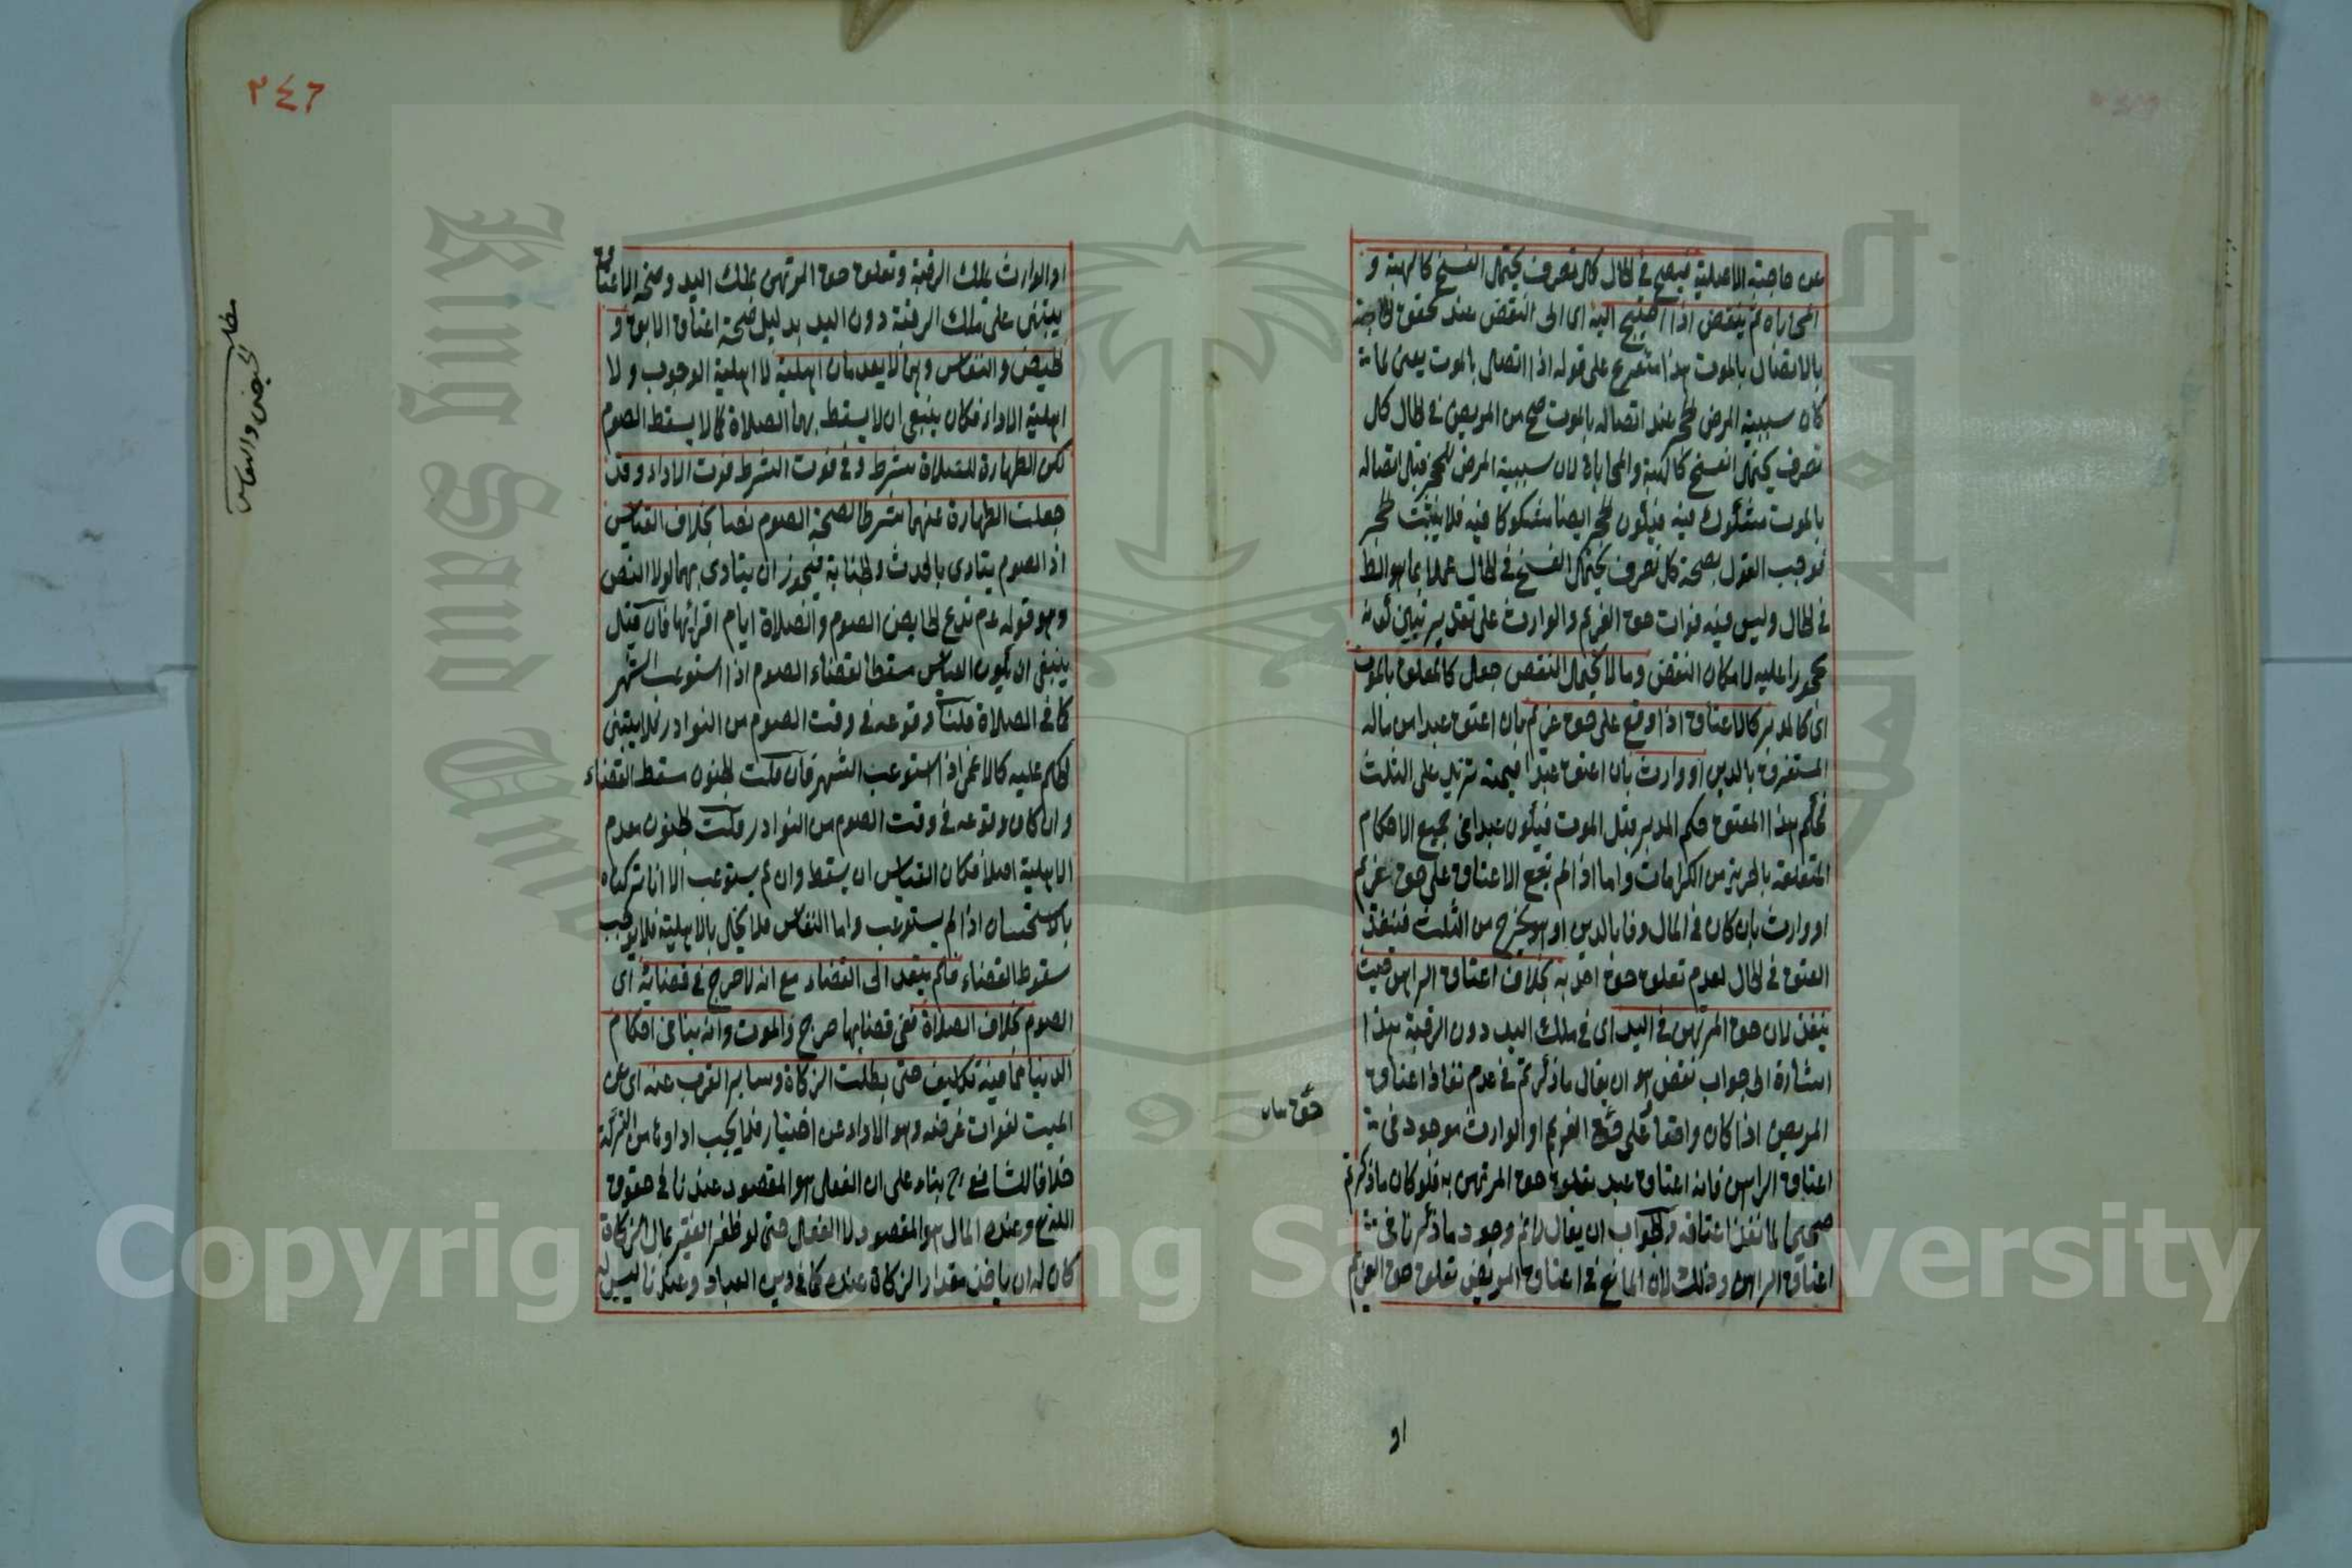 عن حاجته الاصلية فيصح في الحال كل تصرف يحتمل الفسخ كالهبة و
المحاباة ثم ينقض اذا احتيج اليه اى الى النقض عند تحقق الحاجة
بالاتصال بالموت هذا متفرع على قوله اذا اتصل بالموت يعني لما
كان سببية المرض للحجر عند اتصاله بالموت صح من المريض في الحال كل
تصرف يحتمل الفسخ كالهبة والمحاباة لان سببية المرض للحجر قبل اتصاله
بالموت مشكوك فيه فيكون الحجر ايضا مشكوكا فيه فلا يثبت الحجر
فوجب القول بصحة كل تصرف يحتمل الفسخ في الحال عملا بما هو
في الحال وليس فيه فوات حق الغريم والوارث على تقدير تبيين كونه
محجورا عليه لامكان النقض وما لا يحتمل النقض جعل كالمعلق بالموت
اى كالمدبر كالاعتاق اذا وقع على حق غريم بان اعتق عبدا من ماله
المستغرق بالدين او وارث بان اعتق عبدا قيمته تزيد على الثلث
فحكم هذا المعتق حكم المدبر قبل الموت فيكون عبدا في جميع الاحكام
المتعلقة بالحرية من الكرامات واما اذا لم يقع الاعتاق على حق غريم
او وارث بان كان في المال وفا بالدين او هو يخرج من الثلث فينفذ
العتق في الحال لعدم تعلق حق احد به بخلاف اعتاق الراهن حيث
ينفذ لان حق المرتهن في اليد اى في ملك اليد دون الرقبة هذا
اشارة الى جواب نقض هو ان يقال ما ذكرتم في عدم نفاذ اعتاق
المريض اذا كان واقعا على حق الغريم او الوارث موجود في
اعتاق الراهن فانه اعتاق عبد تعلق حق المرتهن به فلو كان ما ذكرتم
صحيحا لما نفذ اعتاقه والجواب ان يقال لانم وجود ما ذكرنا في
اعتاق الراهن وذلك لان المانع في اعتاق المريض تعلق حق الغريم
او
٢٤٦
او الوارث بملك الرقبة وتعلق حق المرتهن بملك اليد وصحة الاعتاق
يبتنى على ملك الرقبة دون اليد بدليل صحة اعتاق الابق و
الحيض والنفاس وهما لا يعدمان اهلية لا اهلية الوجوب ولا
اهلية الاداء فكان ينبغي ان لا يسقط بهما الصلاة كما لا يسقط الصوم
لكن الطهارة للصلاة شرط وفي فوت الشرط فوت الاداء وقد
جعلت الطهارة عنهما شرطا لصحة الصوم نصا بخلاف القياس
اذ الصوم يتادى بالحدث والجنابة فيجوز ان يتادى بهما لولا النص
وهو قوله عم تدع الحايض الصوم والصلاة ايام اقرائها فان قيل
ينبغي ان يكون النفاس مسقطا لقضاء الصوم اذا استوعب الشهر
كما في الصلاة قلنا وقوعه في وقت الصوم من النوادر فلا يبتنى
الحكم عليه كالاغماء اذا استوعب الشهر فان قلت الجنون سقط القضاء
وان كان وقوعه في وقت الصوم من النوادر قلت الجنون معدم
الاهلية اصلا فكان القياس ان يسقط وان لم يستوعب الا انا تركناه
بالاستحسان اذا لم يستوعب واما النفاس فلا يخل بالاهلية فلا يوجب
سقوط القضاء فلم يتعد الى القضاء مع انه لا حرج في قضائه اى
الصوم بخلاف الصلاة ففي قضايها حرج والموت وانه ينافي احكام
الدنيا مما فيه تكليف حتى بطلت الزكاة وساير القرب عنه اى عن
الميت لفوات غرضه وهو الاداء عن اختيار فلا يجب اداؤها من التركة
خلافا للشافعي رح بناء على ان الفعل هو المقصود عندنا في حقوق
الله تع وعنده المال هو المقصود لا الفعل حتى لو ظفر الفقير بمال الزكاة
كان له ان ياخذ مقدار الزكاة عنده كما في دين العباد وعندنا ليس له
مطلب
الحيض والنفاس
King Saud Univ
1957
Copyright © King Saud University